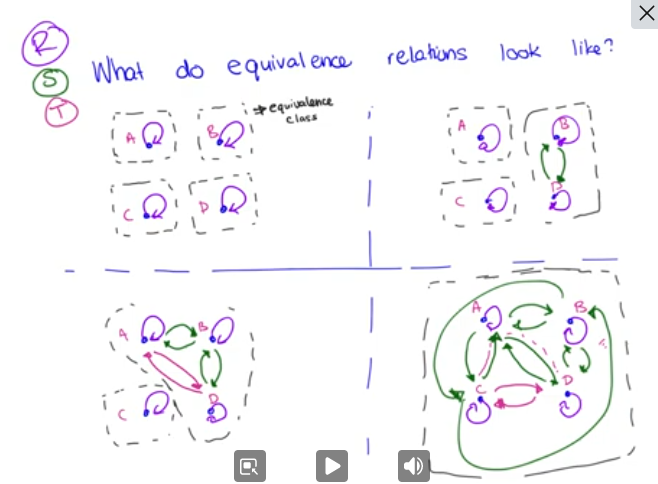 R
S
T
What do equivalence relations look like?
→ equivalence
class
A B
C D
A B
C D
A B
C D
A B
C D